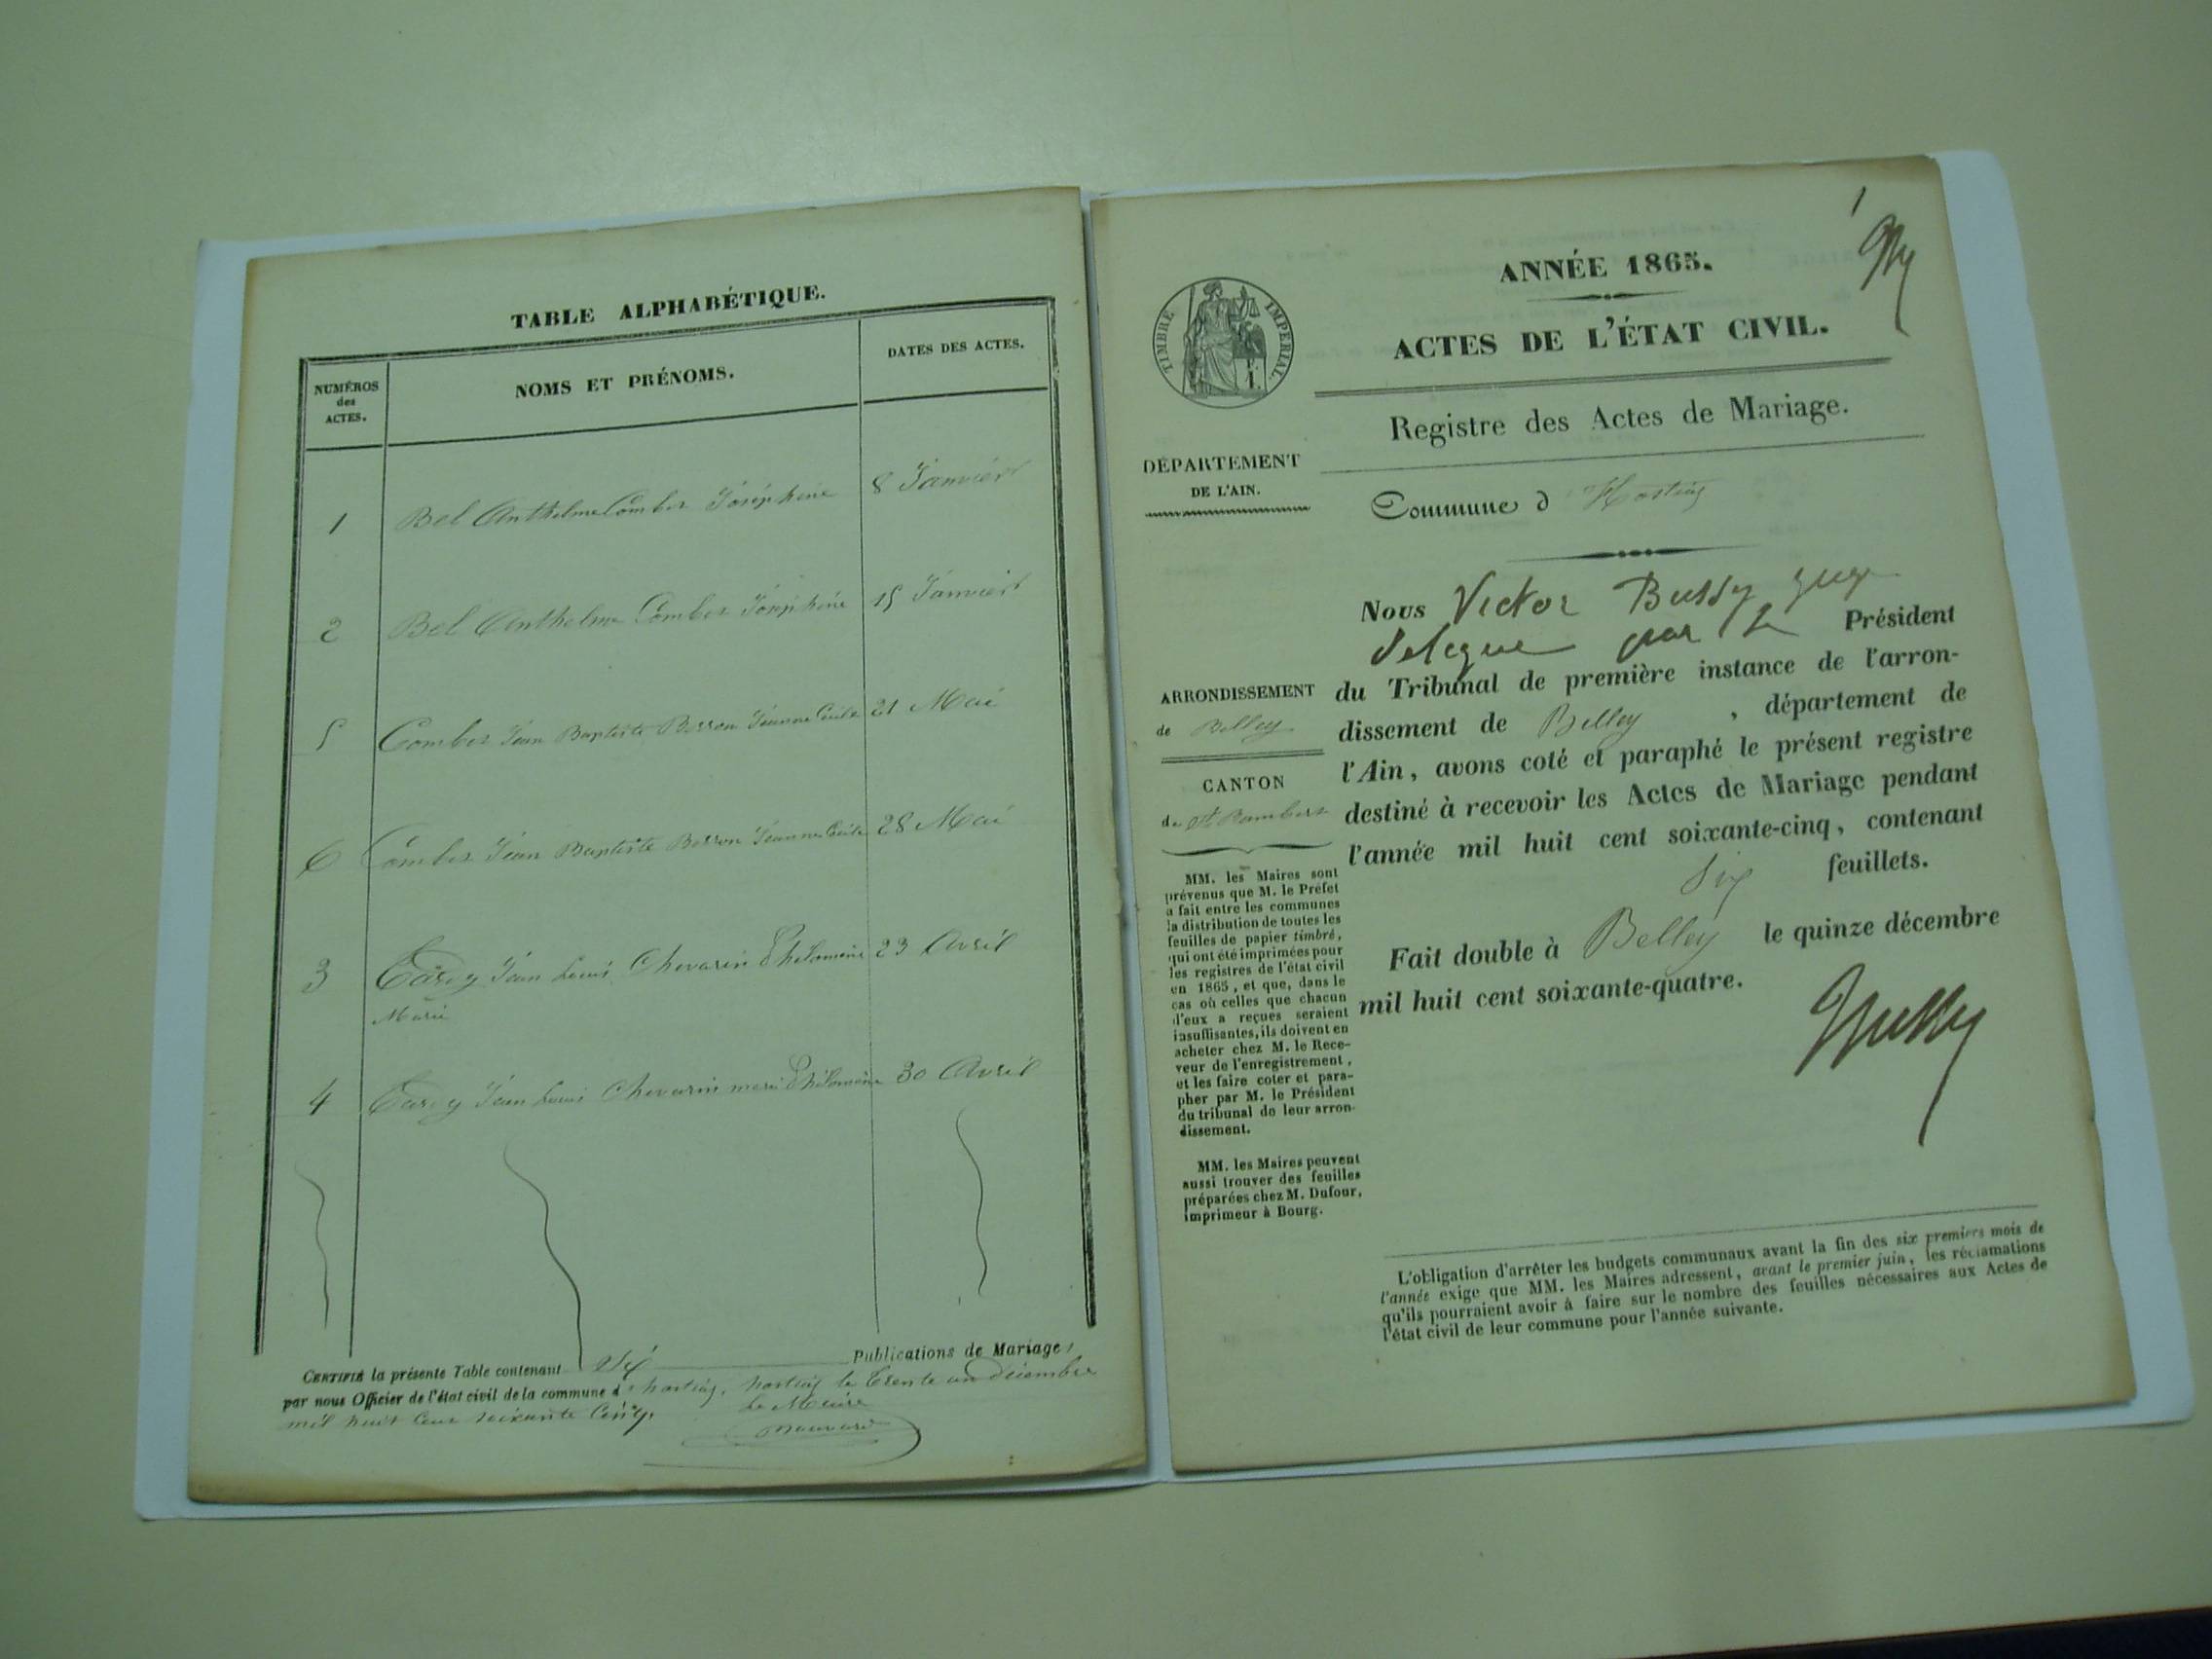 TABLE ALPHABÉTIQUE.
NUMÉROS des ACTES.
NOMS ET PRÉNOMS.
DATES DES ACTES.
1 Bel Anthelme Combes Joséphine 8 Janvier
2 Bel Anthelme Combes Joséphine 15 Janvier
5 Combes Jean Baptiste Besson Jeanne Cécile 21 Mai
6 Combes Jean Baptiste Besson Jeanne Cécile 28 Mai
3 Jean Louis Chevarin Philomène 23 Avril
Marie
4 Jean Louis Chevarin marie Philomène 30 Avril
CERTIFIÉ la présente Table contenant Six Publications de Mariage,
par nous Officier de l'état civil de la commune d'hostiaz, hostiaz le trente un décembre
mil huit cent soixante cinq. Le Maire
1
ANNÉE 1865.
ACTES DE L'ÉTAT CIVIL.
TIMBRE IMPERIAL
Registre des Actes de Mariage.
DÉPARTEMENT
DE L'AIN.
Commune d'Hostiaz
Nous Victor Bussy juge
délégué par le Président
du Tribunal de première instance de l'arron-
dissement de Belley, département de
l'Ain, avons coté et paraphé le présent registre
destiné à recevoir les Actes de Mariage pendant
l'année mil huit cent soixante-cinq, contenant
six feuillets.
Fait double à Belley le quinze décembre
mil huit cent soixante-quatre.
Bussy
ARRONDISSEMENT
de Belley
CANTON
de St Rambert
MM. les Maires sont
prévenus que M. le Préfet
a fait entre les communes
la distribution de toutes les
feuilles de papier timbré,
qui ont été imprimées pour
les registres de l'état civil
en 1865, et que, dans le
cas où celles que chacun
d'eux a reçues seraient
insuffisantes, ils doivent en
acheter chez M. le Rece-
veur de l'enregistrement,
et les faire coter et para-
pher par M. le Président
du tribunal de leur arron-
dissement.
MM. les Maires peuvent
aussi trouver des feuilles
préparées chez M. Dufour,
imprimeur à Bourg.
L'obligation d'arrêter les budgets communaux avant la fin des six premiers mois de
l'année exige que MM. les Maires adressent, avant le premier juin, les réclamations
qu'ils pourraient avoir à faire sur le nombre des feuilles nécessaires aux Actes de
l'état civil de leur commune pour l'année suivante.